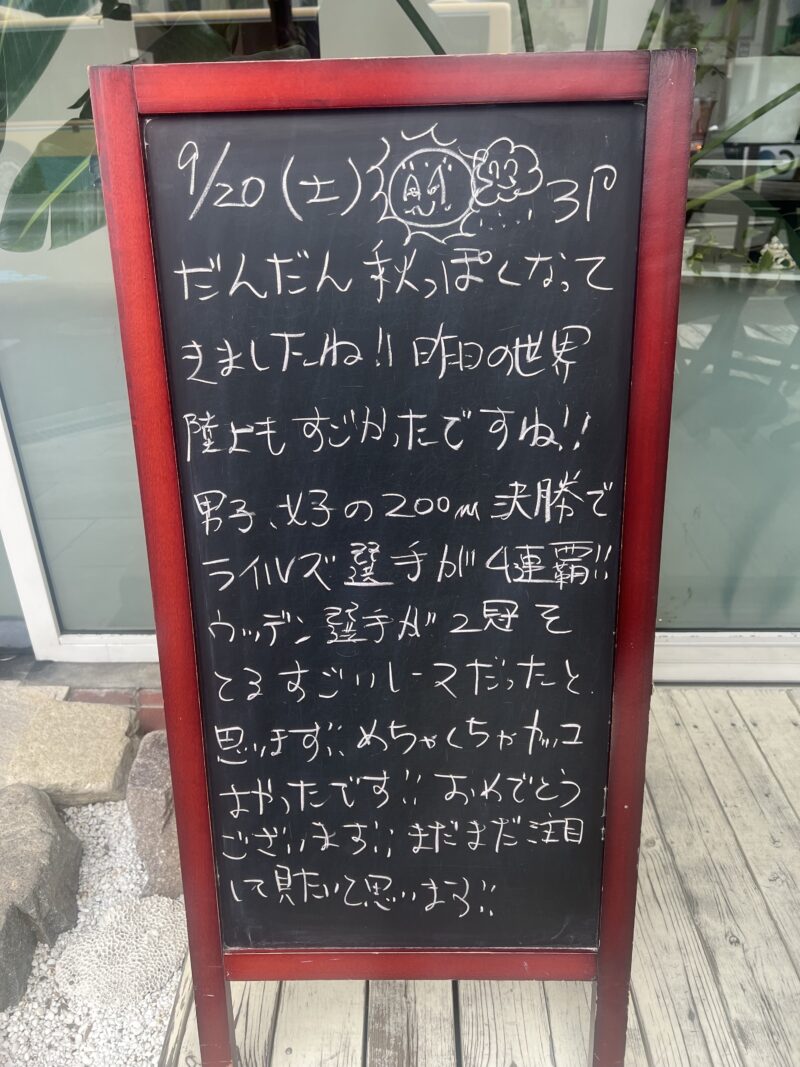 9/20(土) 3P
だんだん秋っぽくなって
きましたね!!昨日の世界
陸上もすごかったですね!!
男子、女子の200m決勝で
ライルズ選手が4連覇!!
ウッデン選手が2冠そ
てるすごいレースだったと
思います!!めちゃくちゃカッコ
よかったです!!おめでとう
ございます!!まだまだ注目
して見たいと思います!!